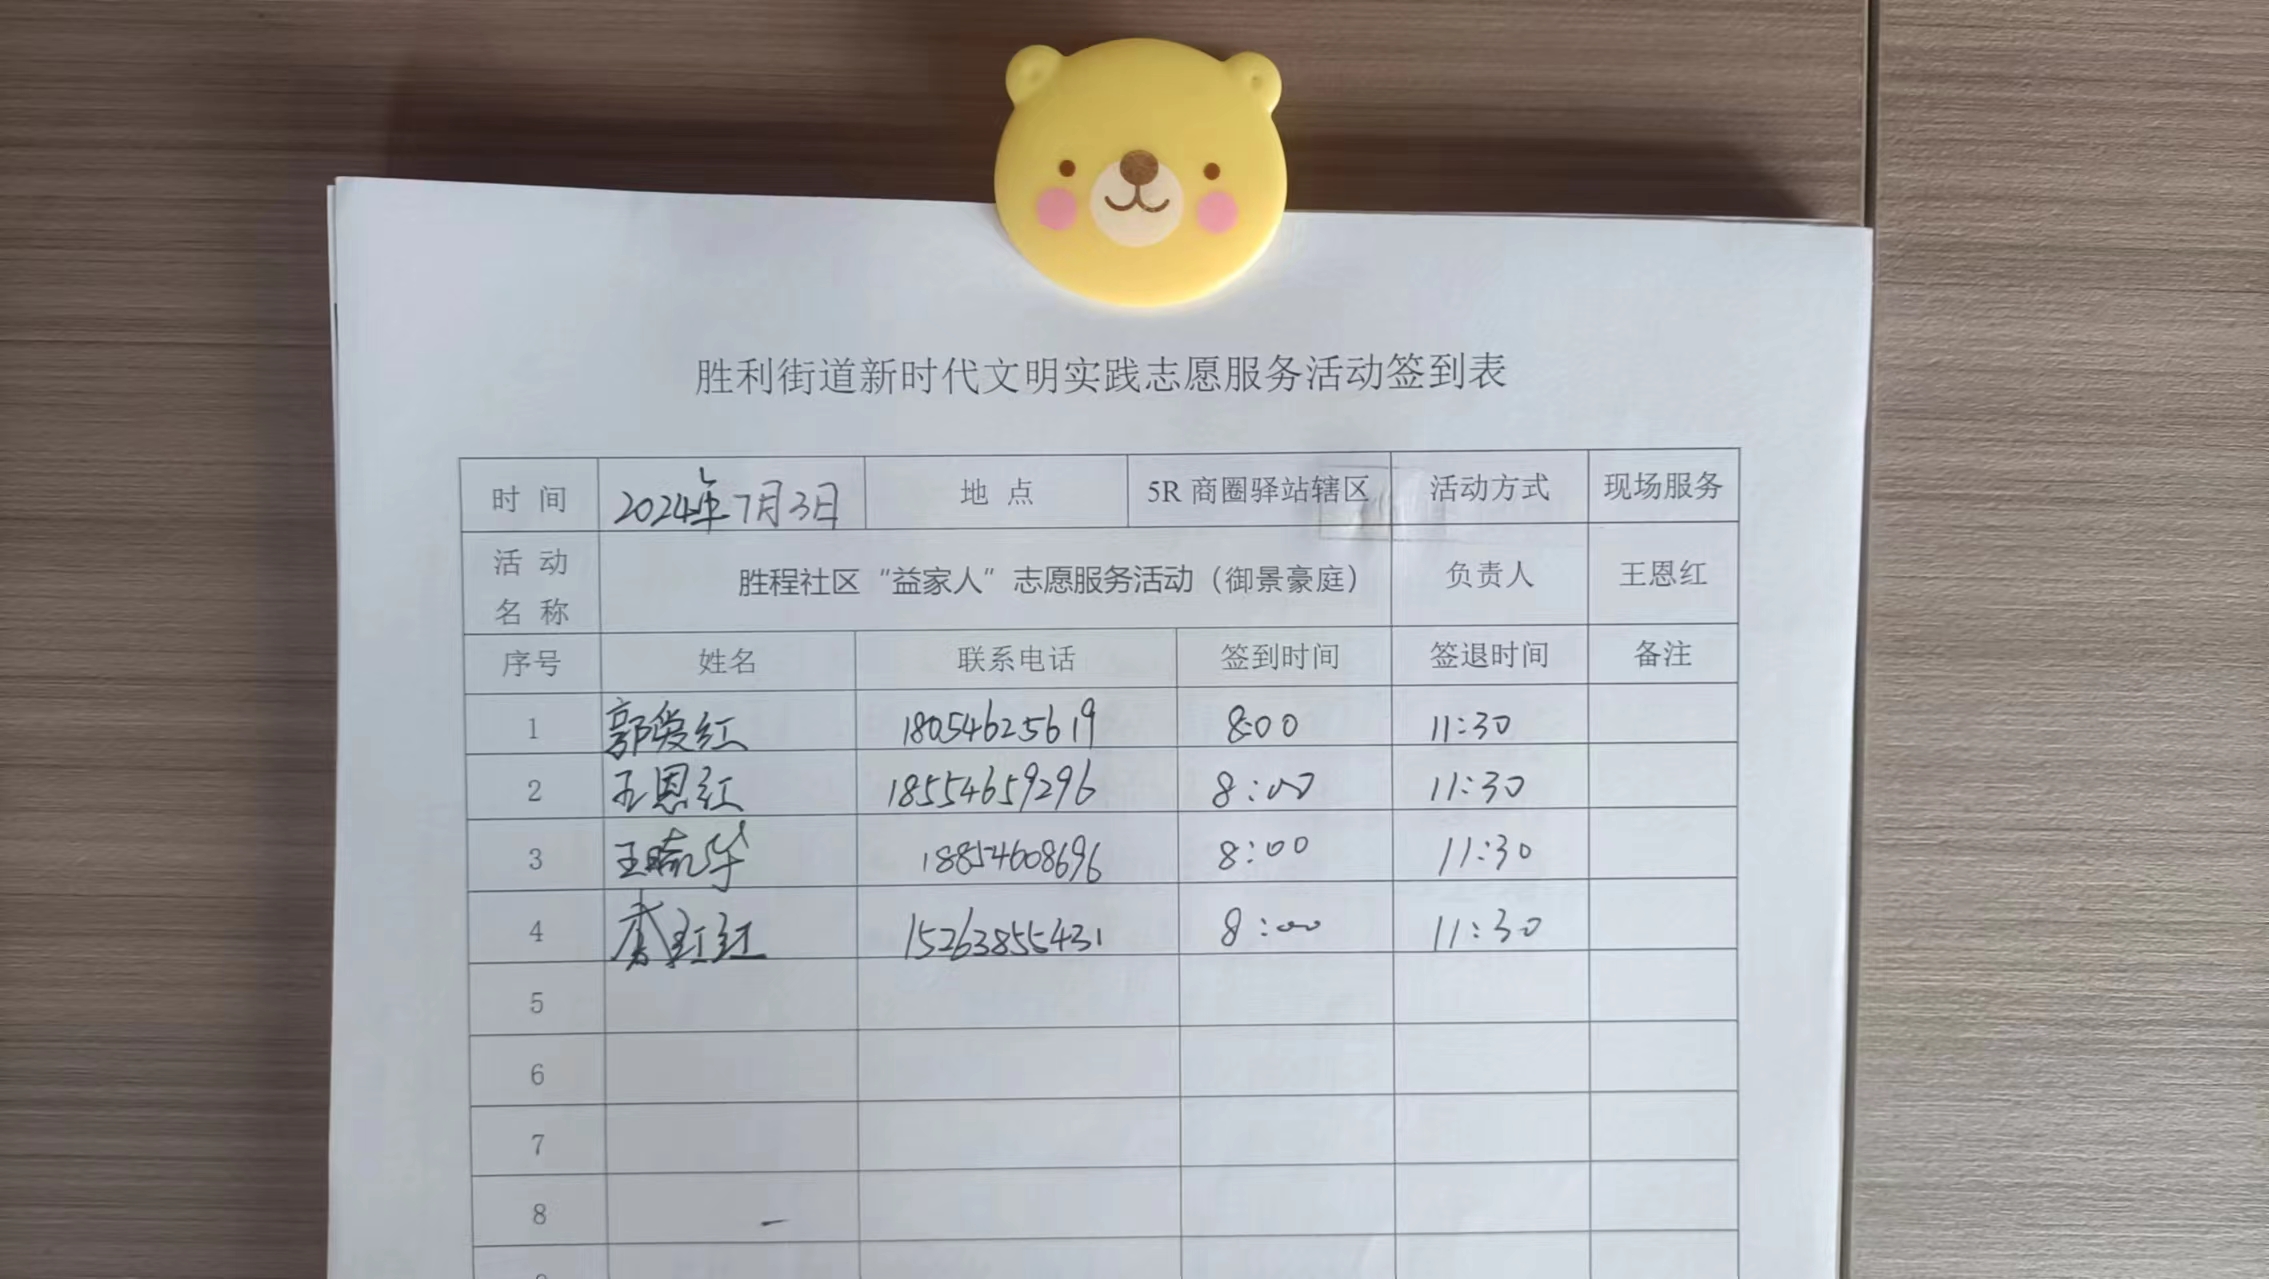 胜利街道新时代文明实践志愿服务活动签到表
时 间 2024年7月3日 地 点 5R 商圈驿站辖区 活动方式 现场服务
活 动
名 称 胜程社区“益家人”志愿服务活动（御景豪庭） 负责人 王恩红
序号 姓名 联系电话 签到时间 签退时间 备注
1 郭爱红 18054625619 8:00 11:30
2 王恩红 18554659296 8:00 11:30
3 王晓华 18854608696 8:00 11:30
4 15263855431 8:00 11:30
5
6
7
8